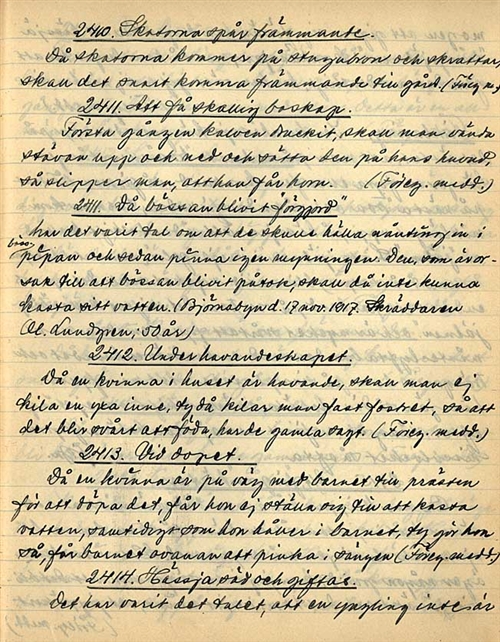 2410. Skatorna spår främmande.
Då skatorna kommer på stugubron och skrattar,
skall det snart komma främmande till gård. (Föreg. m.)
2411. Att få skallig boskap.
Första gången kalven druckit, skall man vända
stävan upp och ned och sätta den på hans huvud,
så slipper man, att han får horn. (Föreg. medd.)
2411. Då bössan blivit "förgjord"
har det varit tal om att de skulle hälla nånting in i
böss-
pipan och sedan pinna igen mynningen. Den, som är or-
sak till att bössan blivit påtok, skall då inte kunna
kasta sitt vatten. (Björnabyn d. 17 nov. 1917. Skräddaren
Ol. Lundgren; 50 år)
2412. Under havandeskapet.
Då en kvinna i huset är havande, skall man ej
kila en yxa inne, ty då kilar man fast fostret, så att
det blir svårt att föda, har de gamla sagt. (Föreg. medd.)
2413. Vid dopet.
Då en kvinna är på väg med barnet till prästen
för att döpa det, får hon ej ställa sig till att kasta
vatten, samtidigt som hon håller i barnet, ty gör hon
så, får barnet ovanan att pinka i sängen (Föreg. medd.)
2414. Hässja säd och giftas.
Det har varit det talet, att en yngling inte är